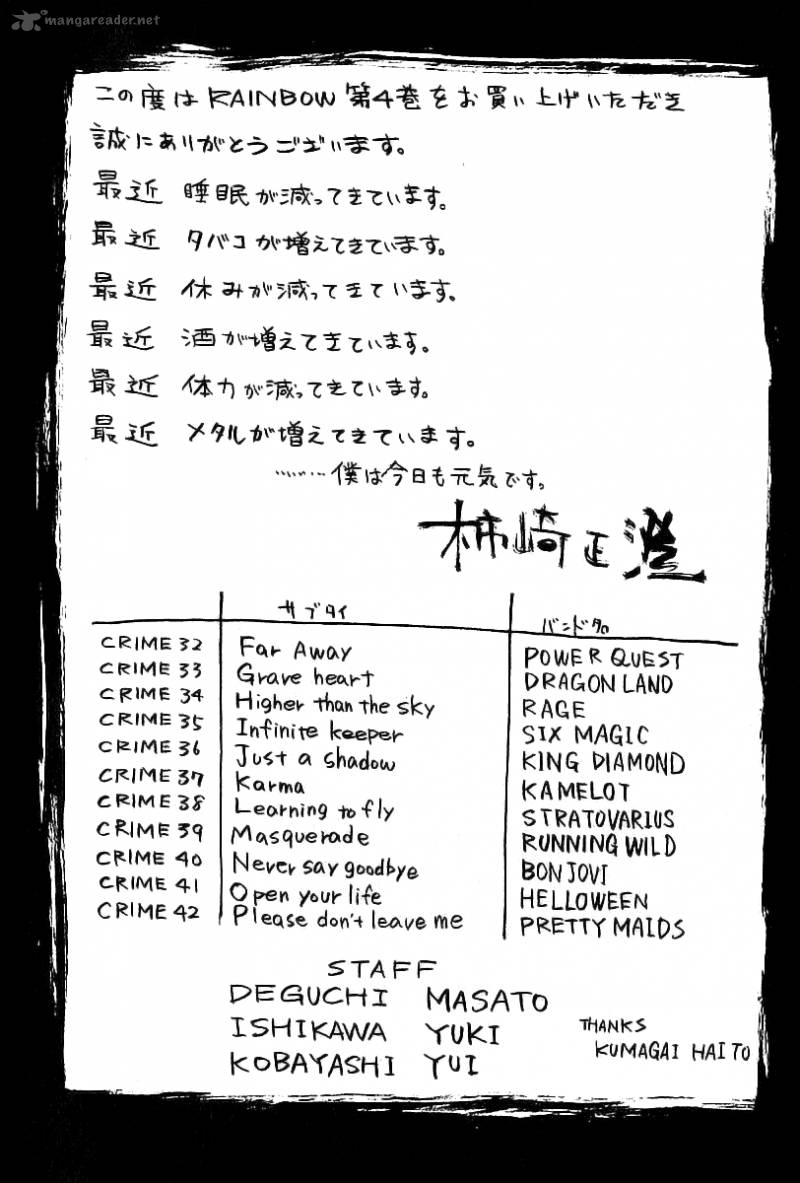 mangareader.net
この度は RAINBOW 第4巻をお買い上げいただき
誠にありがとうございます。
最近 睡眠が減ってきています。
最近 タバコが増えてきています。
最近 休みが減ってきています。
最近 酒が増えてきています。
最近 体力が減ってきています。
最近 メタルが増えてきています。
………僕は今日も元気です。
柿崎正澄
サブタイ バンド名
CRIME 32 Far Away POWER QUEST
CRIME 33 Grave heart DRAGON LAND
CRIME 34 Higher than the sky RAGE
CRIME 35 Infinite keeper SIX MAGIC
CRIME 36 Just a shadow KING DIAMOND
CRIME 37 Karma KAMELOT
CRIME 38 Learning to fly STRATOVARIUS
CRIME 39 Masquerade RUNNING WILD
CRIME 40 Never say goodbye BON JOVI
CRIME 41 Open your life HELLOWEEN
CRIME 42 Please don't leave me PRETTY MAIDS
STAFF
DEGUCHI MASATO
ISHIKAWA YUKI
KOBAYASHI YUI
THANKS
KUMAGAI HAITO